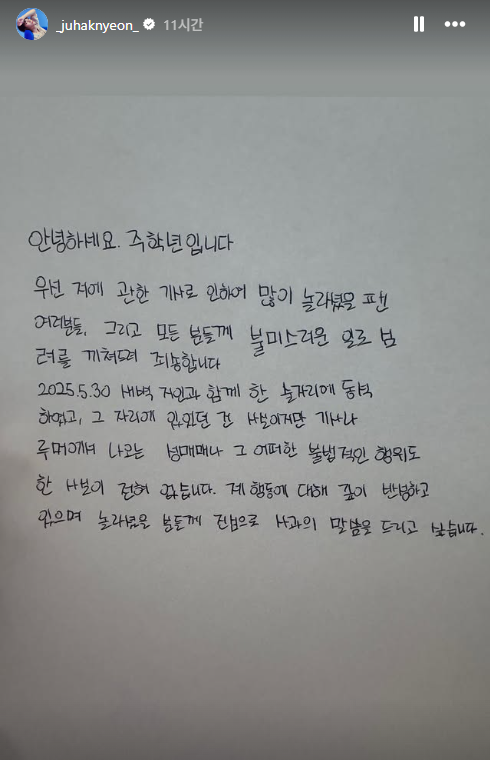 _juhaknyeon_ 11시간
안녕하세요. 주학년입니다
우선 저에 관한 기사로 인하여 많이 놀라셨을 팬
여러분들, 그리고 모든 분들께 불미스러운 일로 심
려를 끼쳐드려 죄송합니다
2025.5.30 새벽 지인과 함께 한 술자리에 동석
하였고, 그 자리에 있었던 건 사실이지만 기사나
루머에서 나오는 성매매나 그 어떠한 불법적인 행위도
한 사실이 전혀 없습니다. 제 행동에 대해 깊이 반성하고
있으며 놀라셨을 분들께 진심으로 사과의 말씀을 드리고 싶습니다.